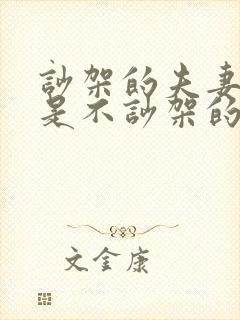 訬架的夫妻
是不訬架的
文金康